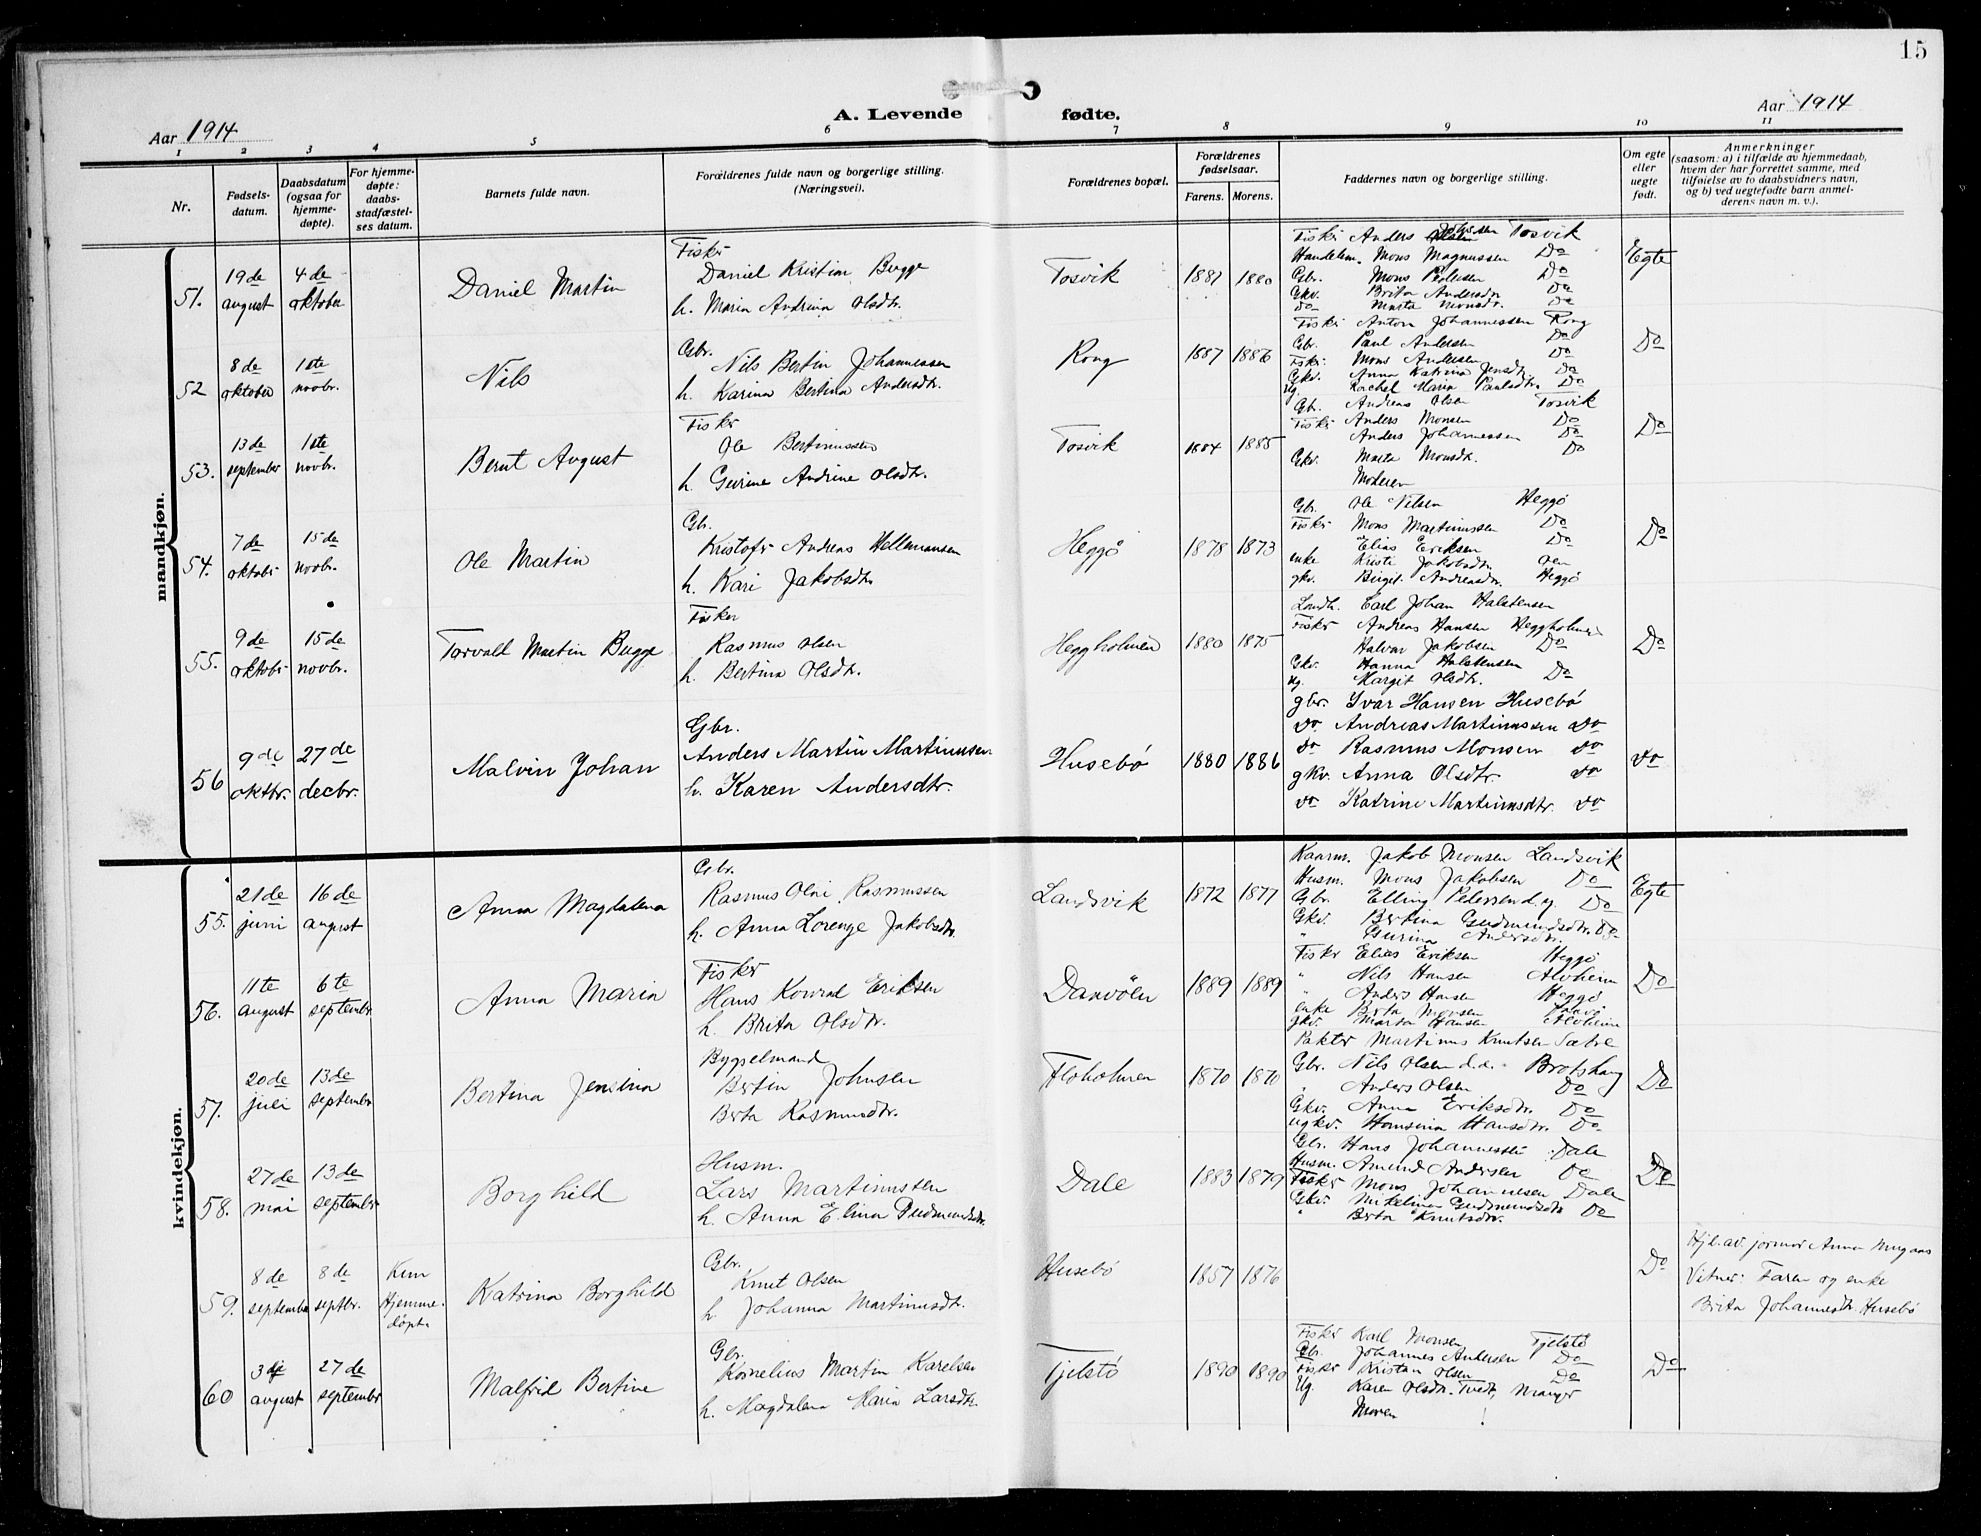 15
A. Levende fødte.
Aar 1914
Aar 1914
1 2 3 4 5 6 7 8 9 10 11
Nr.
Fødsels-datum.
Daabsdatum (ogsaa for hjemme-døpte).
For hjemme-døpte: daabs-stadfæstel-ses datum.
Barnets fulde navn.
Forældrenes fulde navn og borgerlige stilling. (Næringsvei).
Forældrenes bopæl.
Forældrenes fødselsaar.
Farens. Morens.
Faddernes navn og borgerlige stilling.
Om egte eller uegte født.
Anmerkninger
(saasom: a) i tilfælde av hjemmedaab,
hvem der har forrettet samme, med
tilføielse av to daabsvidners navn,
og b) ved uegtefødte barn anmel-
derens navn m. v.).
mandkjøn.
51. 19de august 4de oktober Daniel Martin
Fisker
Daniel Kristian Bugge
h. Maria Andrina Olsdtr.
Tosvik 1881 1880
Fisker Anders Johnsen Tosvik
Handelsm. Mons Magnussen Do
Gbr. Mons Pedersen Do
Gkv. Brita Andersdtr Do
do Marta Monsdtr. do
Egte
52 8de oktober 1ste novbr. Nils
Gbr.
Nils Bertin Johannessen
h. Karina Bertina Andersdtr.
Rong 1887 1886
Fisker Anton Johannessen Rong
Gbr. Paul Andersen Do
Fisker Mons Andersen Do
Gkv. Anna Katrina Jensdtr. Do
Ug. Rachel Maria Paulsdtr. Do
Do
53. 13de september 1ste novbr. Bernt August
Fisker
Ole Bertinussen
h. Gurine Andrine Olsdtr.
Tosvik 1884 1885
Gbr. Andreas Olsen Tosvik
Fisker Anders Monsen Do
Anders Johannessen Do
Gkv. Marta Monsdtr. Do
Moderen
Do
54. 7de oktobr 15de novbr. Ole Martin
Gbr.
Kristofer Andreas Hellemansen
h. Kari Jakobsdtr
Heggø 1878 1873
Gbr. Ole Nilsen Heggø
Fisker Mons Martinussen Do
Elias Eriksen Do
enke Kristi Jakobsdtr Oen
gkv. Birgit Andreasdtr. Heggø
Do
55. 9de oktobr 15de novbr. Torvald Martin Bugge
Fisker
Rasmus Olsen
h. Bertina Olsdtr.
Heggholmen 1880 1875
Landh. Carl Johan Halstensen
Fisker Andreas Hansen Heggholmen
Halvar Jakobsen Do
Gkv. Hanna Halstensen
Ug. Margit Olsdtr. Do
Do
56 9de oktbr. 27de decbr. Malvin Johan
Gbr.
Anders Martin Martinussen
h. Karen Andersdtr.
Husebø 1880 1886
gbr. Ivar Hansen Husebø
do Andreas Martinussen do
do Rasmus Monsen do
gkv. Anna Olsdtr. do
do Katrine Martinusdtr. do
do
kvindekjøn.
55. 21de juni 16de august Anna Magdalena
Gbr.
Rasmus Olai Rasmussen
h. Anna Lorenze Jakobsdtr.
Landsvik 1872 1877
Kaarm. Jakob Monsen Landsvik
Husm. Mons Jakobsen Do
Gbr. Elling Pedersen d.y. Do
Gkv. Bertina Gudmundsdtr. Do
" Gurina Andersdtr.
Egte
56. 11te august 6te septembr Anna Maria
Fisker
Hans Konrad Eriksen
h. Brita Olsdtr.
1889 1889
Fisker Elias Eriksen Heggø
" Nils Hansen Alvheim
" Anders Hansen Heggø
enke Brta Monsen
gkv. Marta Hansen Alvheim
Do
57. 20de juli 13de septembr Bertina Jensina
Bygselmand
Bertin Johnsen
Brta Rasmusdtr.
Floholmen 1870 1870
Pakter Martinus Knutsen Sætre
Gbr. Nils Olsen d.æ. Brotshaug
" Anders Olsen Do
Gkv. Anna Eriksdtr. Do
ugkv. Hansina Hansdtr. Do
Do
58. 27de mai 13de septembr Borghild
Husm.
Lars Martinussen
h. Anna Elina Gudmundsdtr.
Dale 1883 1879
Gbr. Hans Johannessen Dale
Husm. Amund Andersen Do
Fisker Mons Johannesen Dale
Gkv. Mikeline Gudmundsdtr Do
" Brta Knutsdtr.
Do
59. 8de september 8de septbr. Kun Hjemme-døpt. Katrina Borghild
Gbr.
Knut Olsen
h. Johanna Martinusdtr.
Husebø 1857 1876
Do
Hjd. av jormor Anna Mugaas
Vitner: Faren og enke
Brita Johannesdtr. Husebø
60 3dje august 27de septembr Malfrid Bertine
Gbr.
Kornelius Martin Karelsen
h. Magdalena Maria Larsdtr.
Tjelstø 1890 1890
Fisker Karl Monsen Tjelstø
Gbr. Johannes Andersen Do
Fisker Kristan Olsen Do
Ug. Karen Olsdtr. Tvedt, Manger
Moren
Do